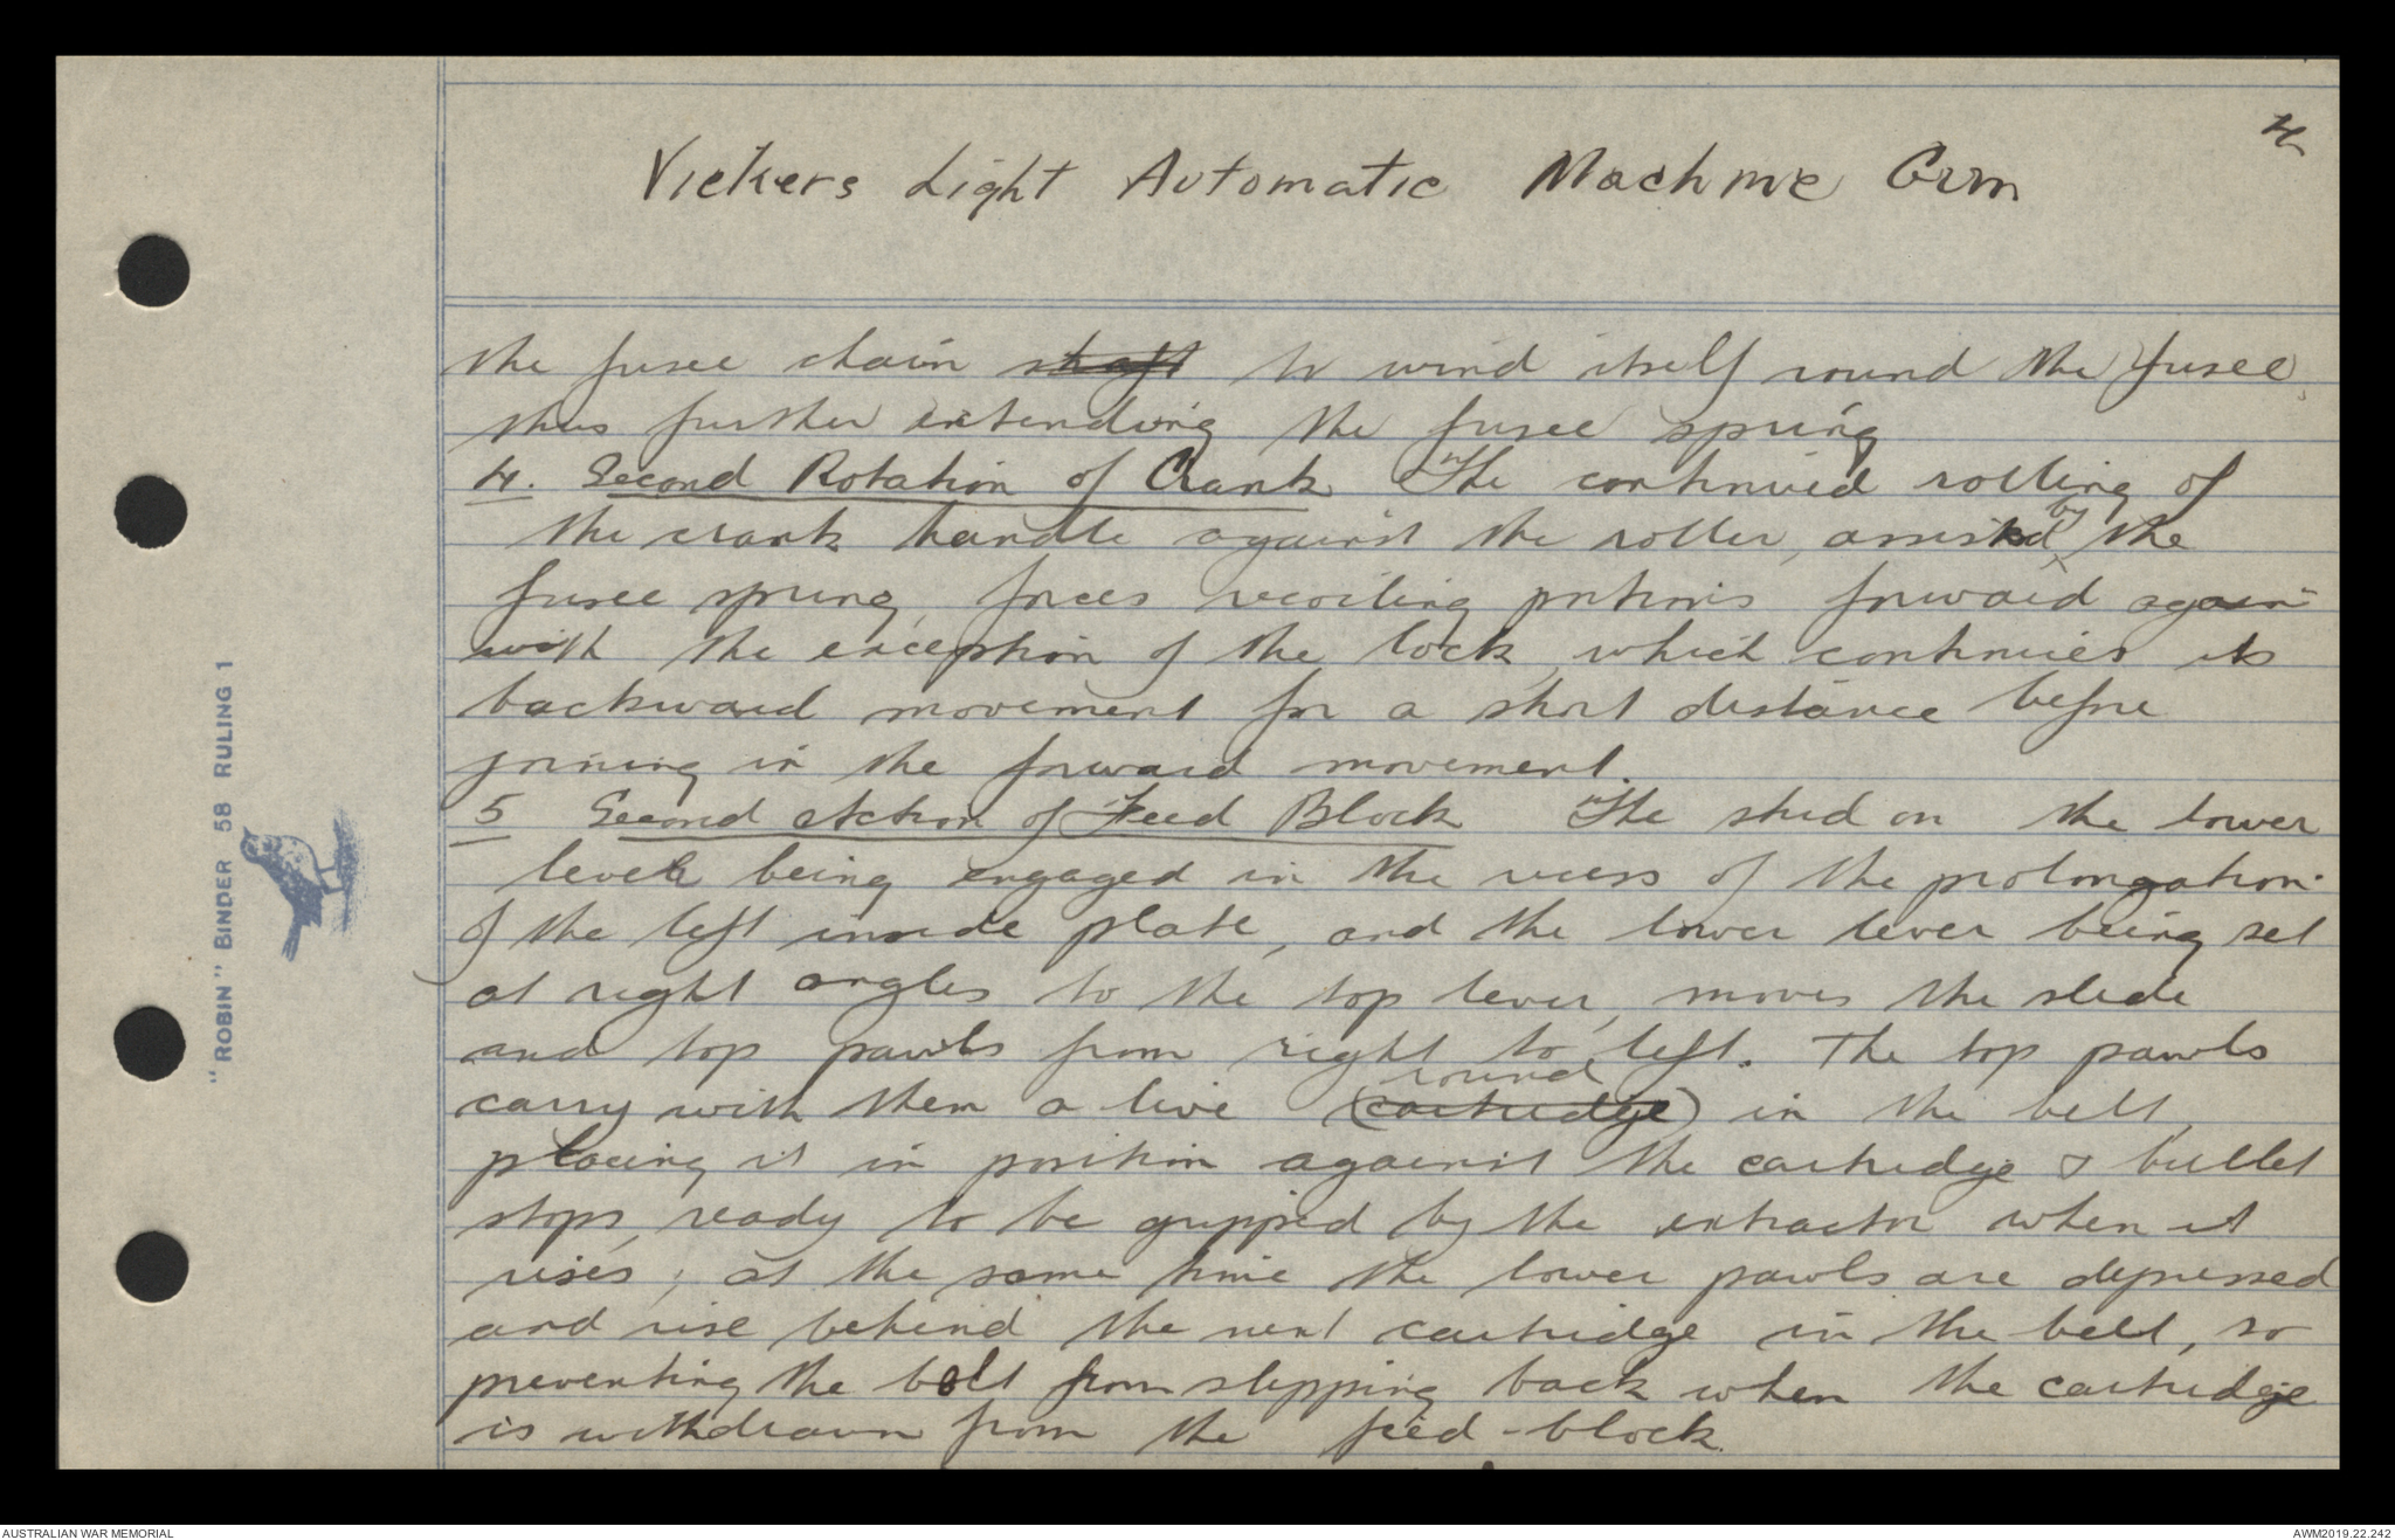 4
Vickers Light Automatic Machine Gun
the fusee chain shaft to wind itself round the fusee,
thus further extending the fusee spring
4. Second Rotation of Crank The continued rolling of
the crank handle against the roller, assisted by the
fusee spring, forces recoiling portions forward again
with the exception of the lock, which continues its
backward movement for a short distance before
joining in the forward movement.
5 Second Action of Feed Block The stud on the lower
lever being engaged in the recess of the prolongation
of the left inside plate, and the lower lever being set
at right angles to the top lever, moves the slide
and top pawls from right to left. The top pawls
round
carry with them a live (cartridge) in the belt,
placing it in position against the cartridge & bullet
stops, ready to be gripped by the extractor when it
rises; at the same time the lower pawls are depressed
and rise behind the next cartridge in the belt, so
preventing the belt from slipping back when the cartridge
is withdrawn from the feed-block.
"ROBIN" BINDER 58 RULING 1
AUSTRALIAN WAR MEMORIAL
AWM2019.22.242